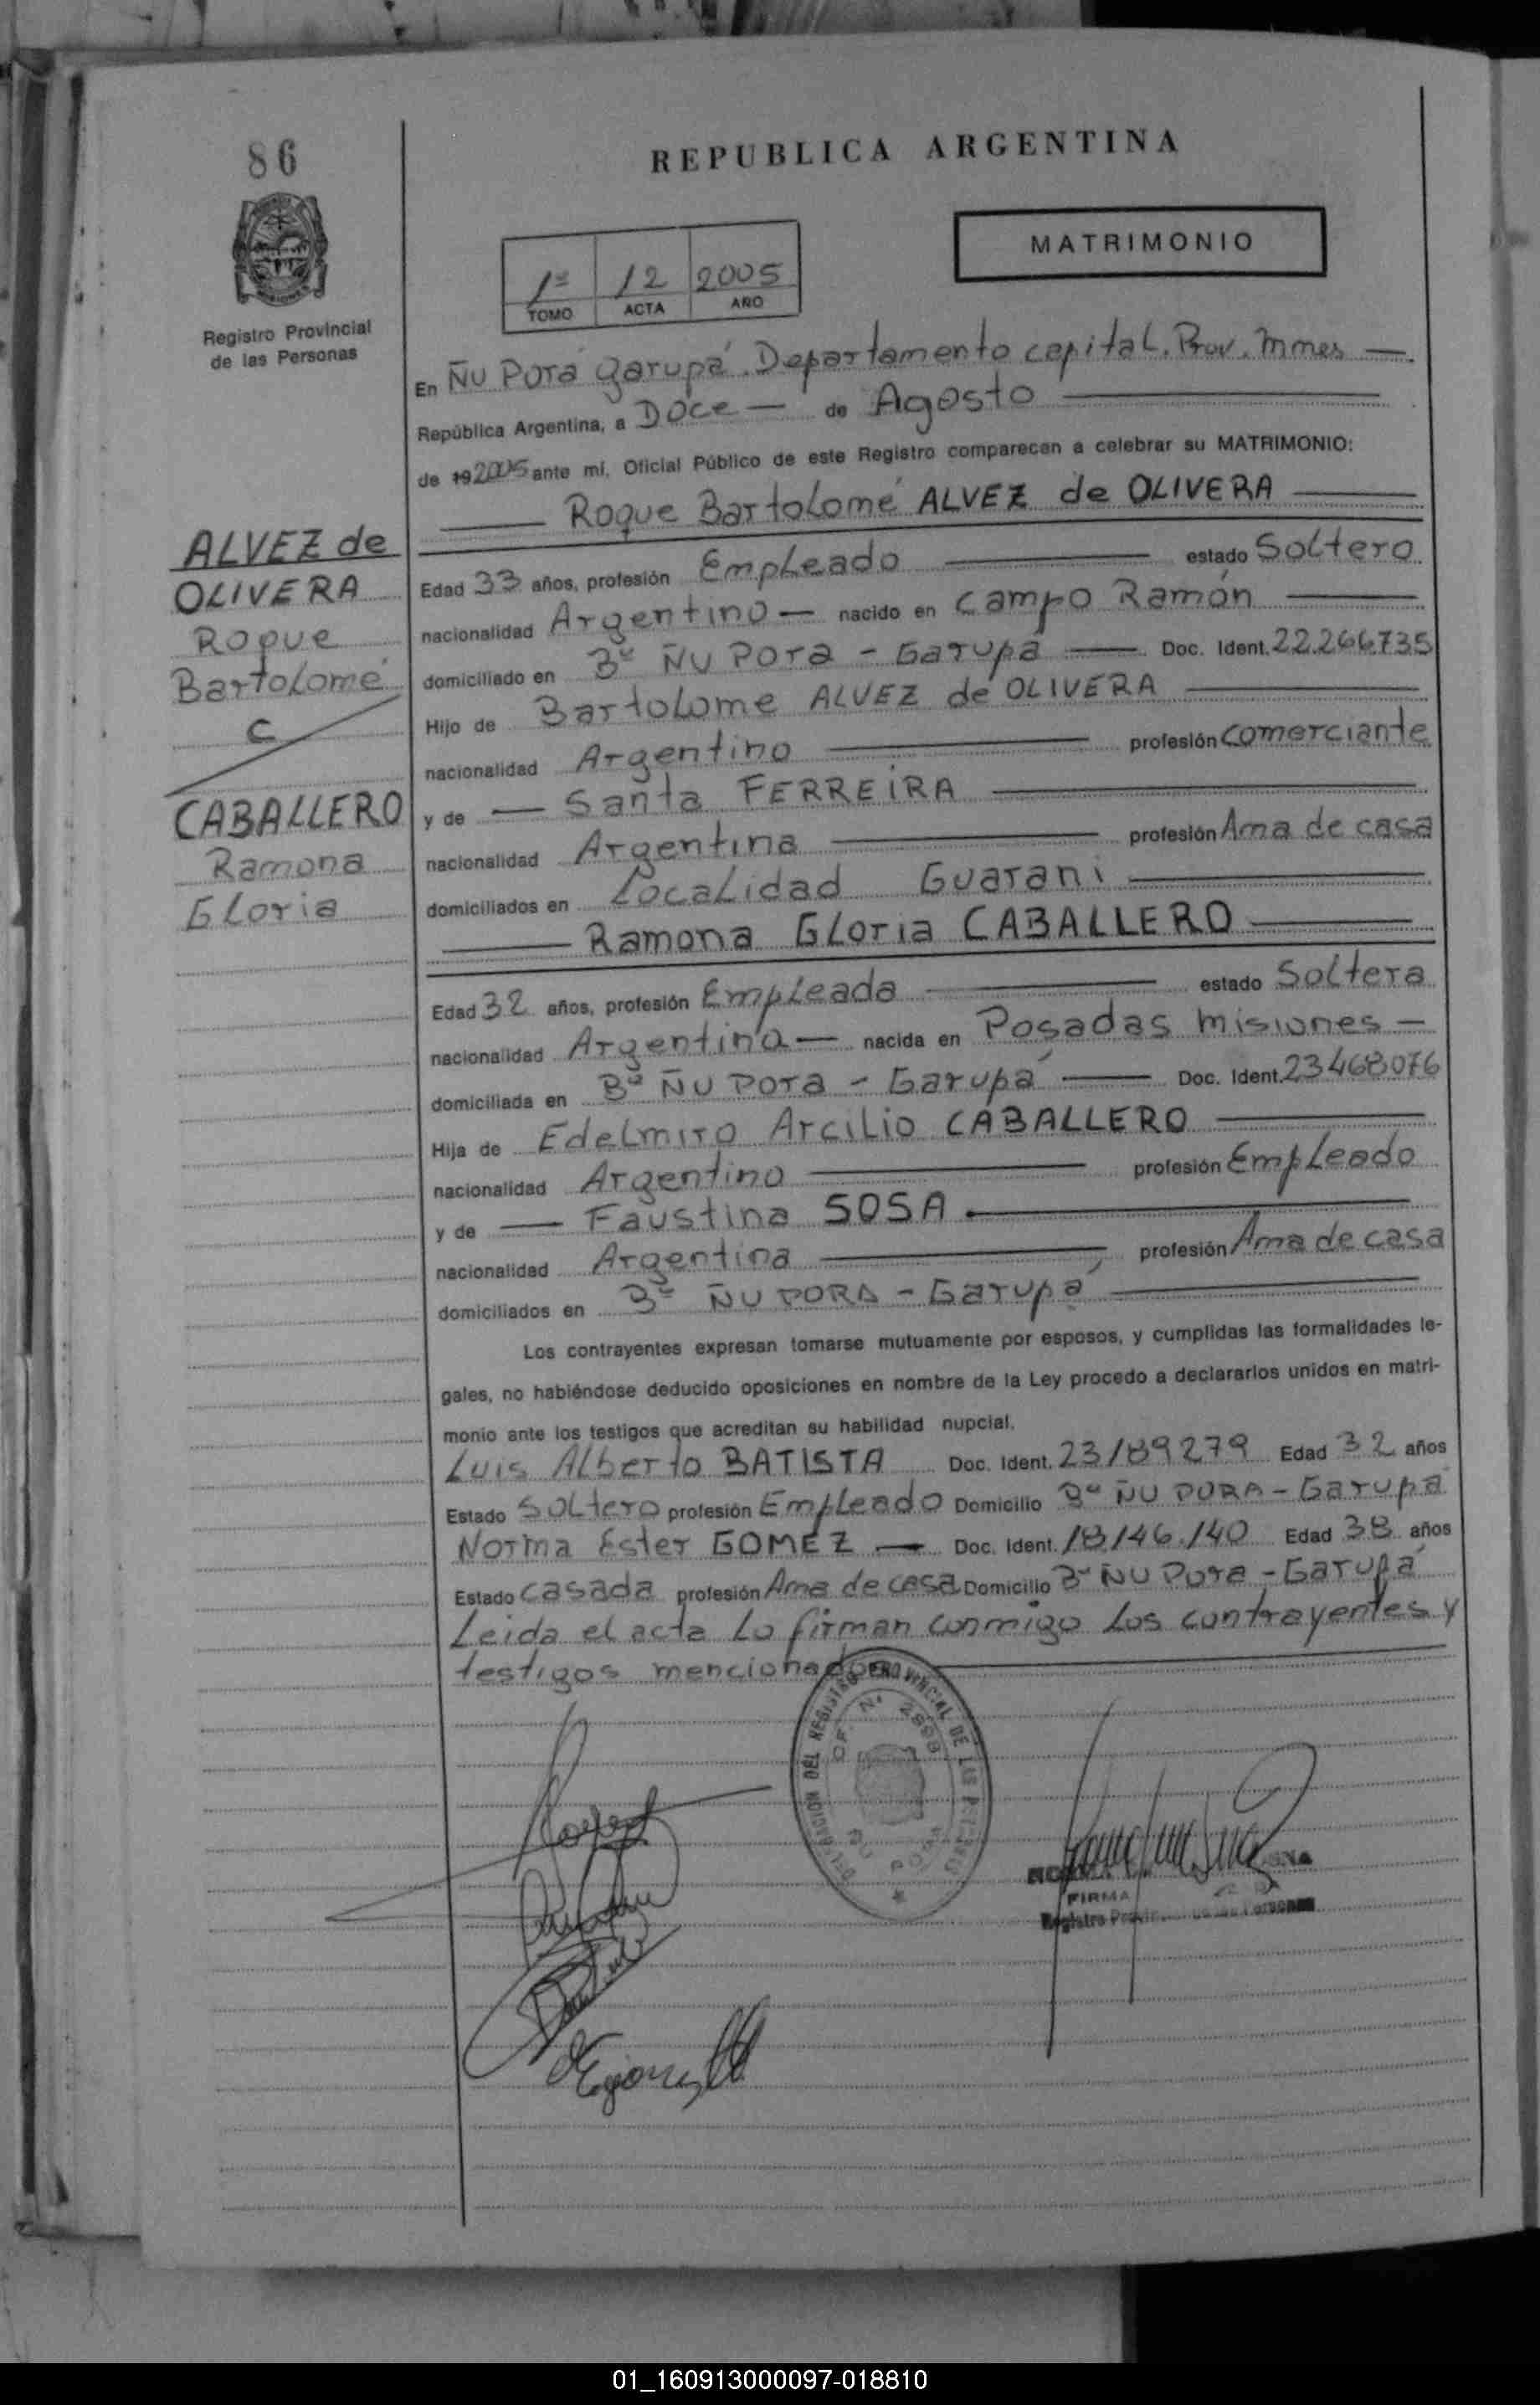 86
REPUBLICA ARGENTINA
MATRIMONIO
1º 12 2005
TOMO ACTA AÑO
Registro Provincial
de las Personas
En Ñu Porá Garupá. Departamento capital. Prov. Mnes —.
República Argentina, a Doce — de Agosto
de 192005 ante mí, Oficial Público de este Registro comparecen a celebrar su MATRIMONIO:
Roque Bartolomé ALVEZ de OLIVERA
ALVEZ de
OLIVERA
Roque
Bartolomé
C
CABALLERO
Ramona
Gloria
Edad 33 años, profesión Empleado estado Soltero
nacionalidad Argentino — nacido en Campo Ramón
domiciliado en Bº Ñu Pora - Garupá — Doc. Ident. 22.266.735
Hijo de Bartolome ALVEZ de OLIVERA
nacionalidad Argentino profesión comerciante
y de — Santa FERREIRA
nacionalidad Argentina profesión Ama de casa
domiciliados en Localidad Guarani
Ramona Gloria CABALLERO
Edad 32 años, profesión Empleada estado Soltera
nacionalidad Argentina — nacida en Posadas Misiones —
domiciliada en Bº Ñu Pora - Garupá — Doc. Ident. 23468076
Hija de Edelmiro Arcilio CABALLERO
nacionalidad Argentino profesión Empleado
y de — Faustina SOSA
nacionalidad Argentina profesión Ama de casa
domiciliados en Bº ÑU PORA - Garupá
Los contrayentes expresan tomarse mutuamente por esposos, y cumplidas las formalidades le-
gales, no habiéndose deducido oposiciones en nombre de la Ley procedo a declararlos unidos en matri-
monio ante los testigos que acreditan su habilidad nupcial.
Luis Alberto BATISTA Doc. Ident. 23189279 Edad 32 años
Estado Soltero profesión Empleado Domicilio Bº ÑU PORA - Garupá
Norma Ester GOMEZ — Doc. Ident. 18.146.140 Edad 38 años
Estado Casada profesión Ama de casa Domicilio Bº Ñu Pora - Garupá
Leida el acta Lo firman conmigo Los contrayentes y
testigos mencionados
DELEGACION DEL REGISTRO PROVINCIAL DE LAS PERSONAS
OF. Nº 2898
ÑU PORA
FIRMA
Registro Provincial de las Personas
01_160913000097-018810